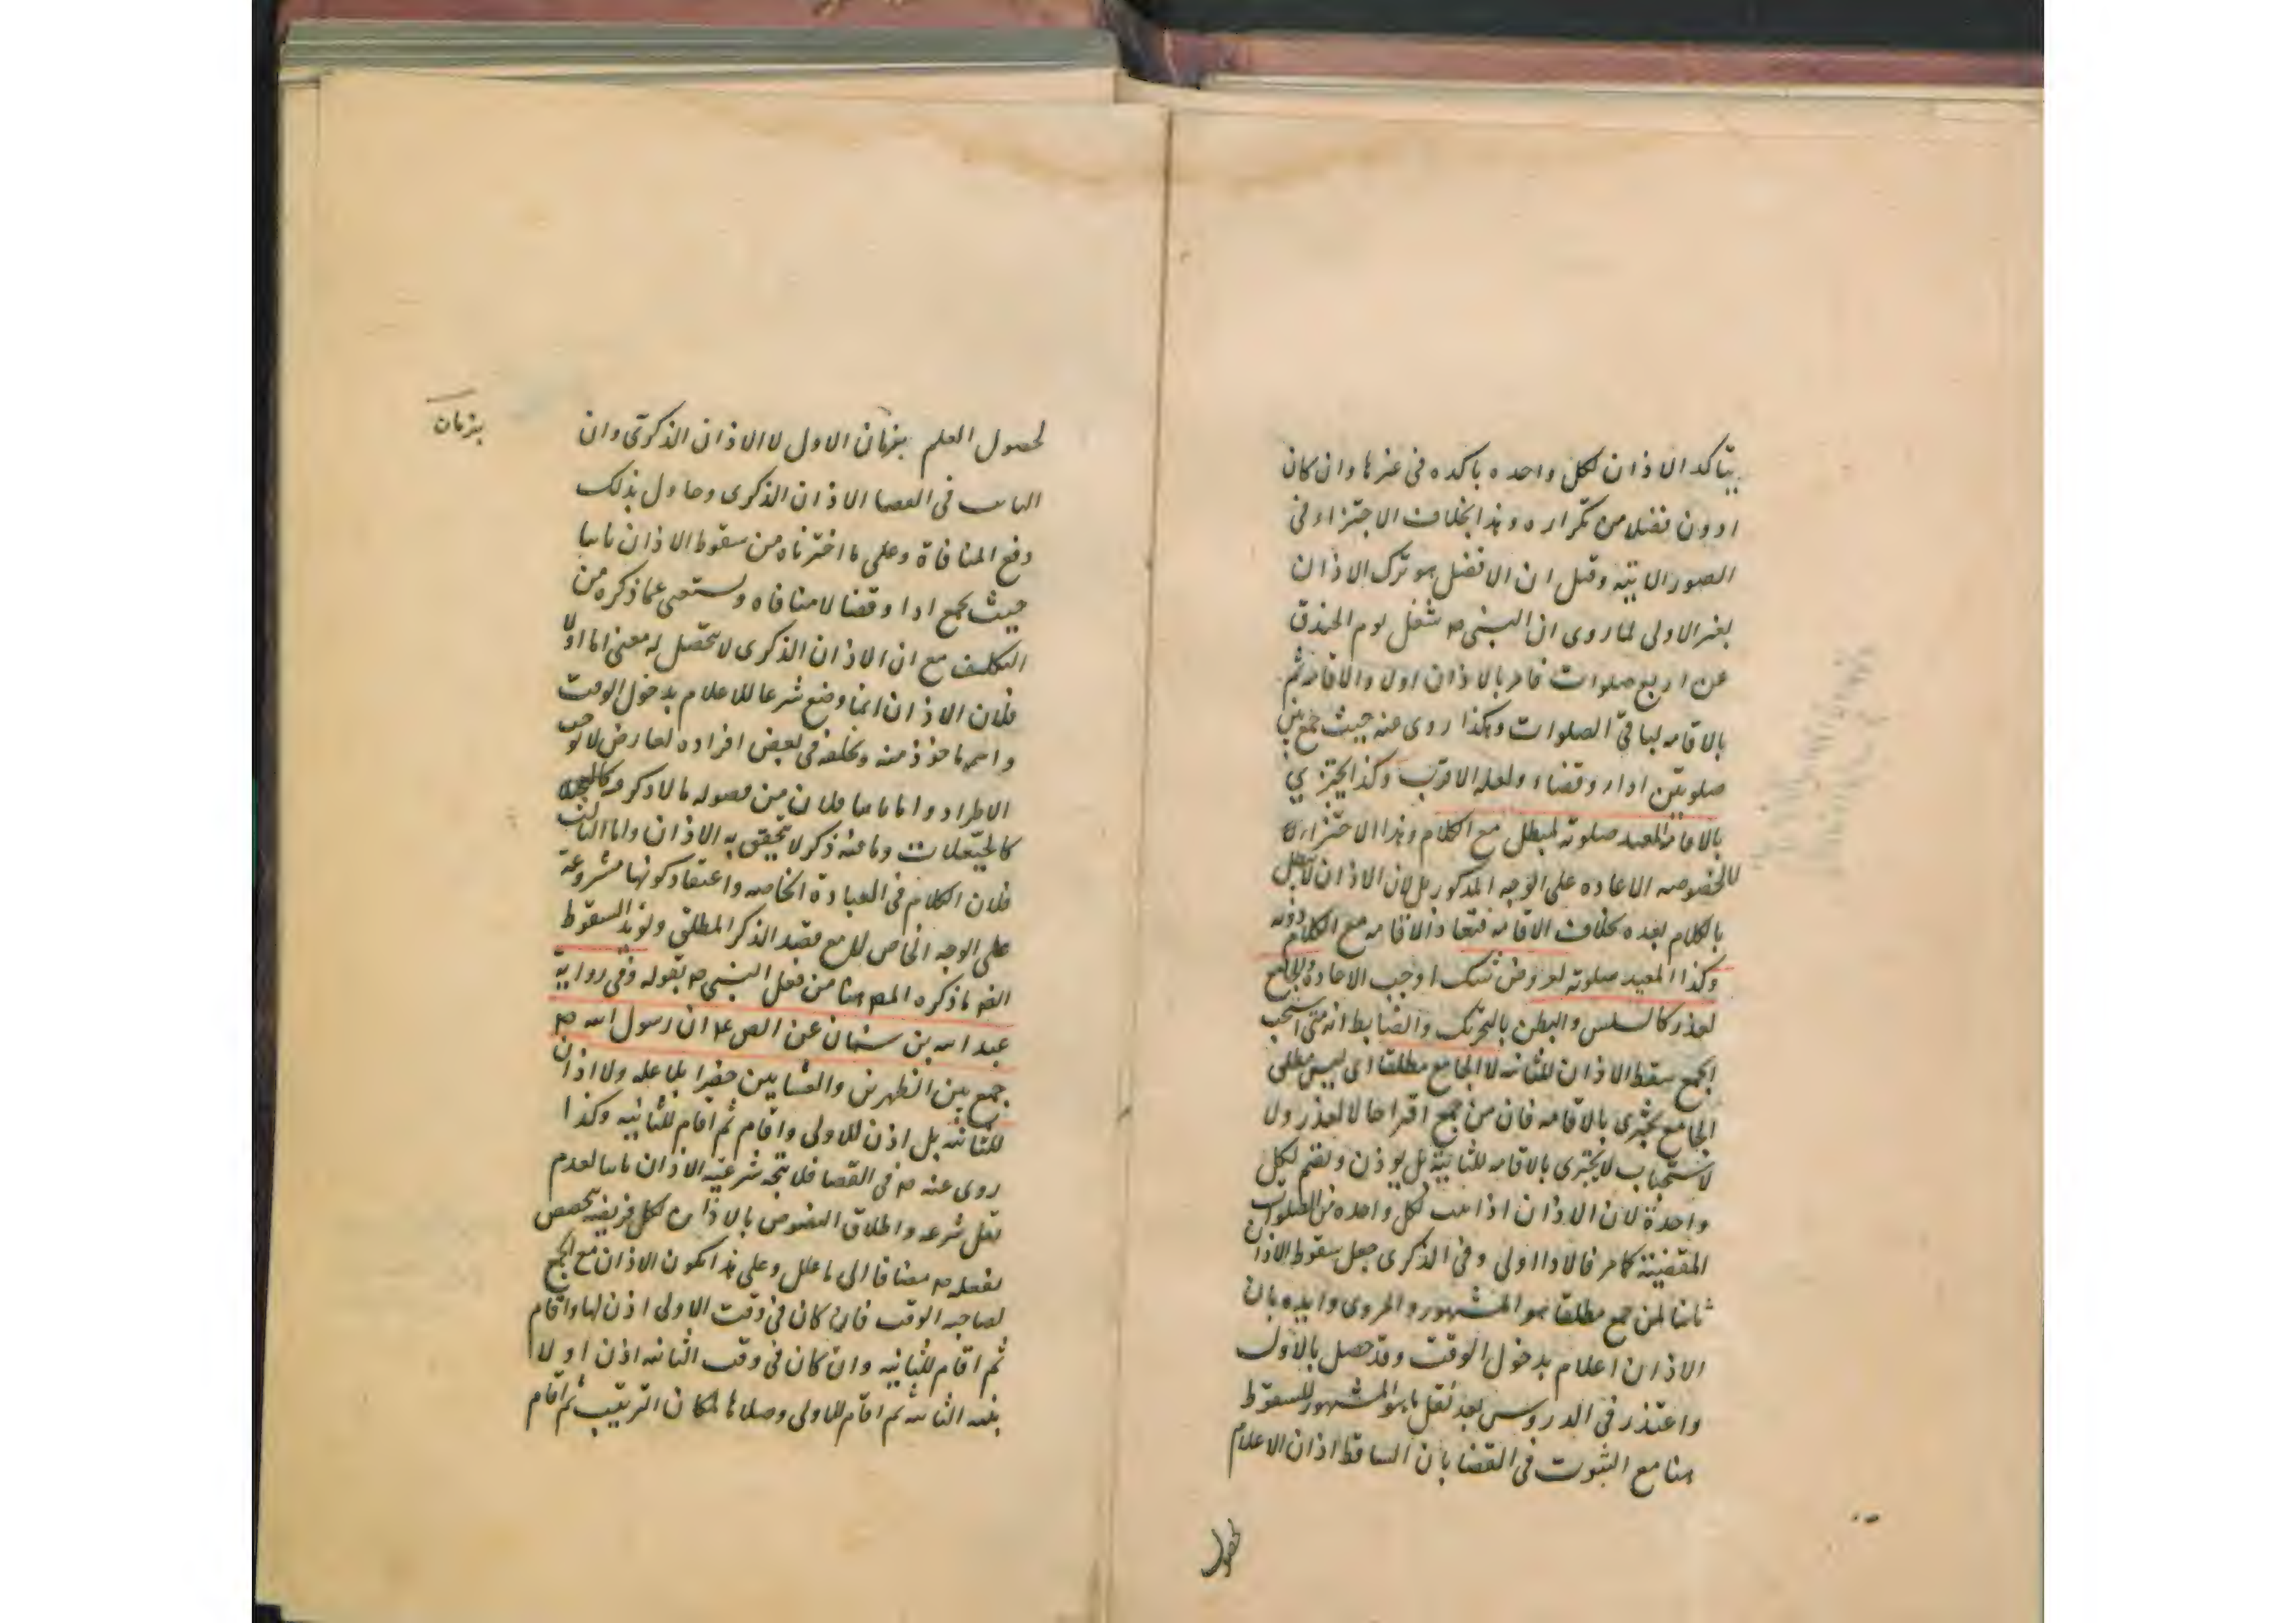 يتأكد الاذان لكل واحده باكده فى غيرها وان كان
ادون فضل من تكراره وهذا بخلاف الاجتزاء فى
الصور الاتيه وقيل ان الافضل هو ترك الاذان
لغير الاولى لما روى ان النبى ص شغل يوم الخندق
عن اربع صلوات فامر بالاذان اولا والاقامه ثم
بالاقامه لباقى الصلوات وهكذا روى عنه حيث جمع بين
صلوتين اداء وقضاء ولعله الاقرب وكذا يجتزى
بالاقامه المعيد صلوته لمبطل مع الكلام وهذا الاجتزاء لا
لخصوصه الاعاده على الوجه المذكور بل لان الاذان لا يبطل
بالكلام بعده بخلاف الاقامه فتعاد الاقامه مع الكلام دونه
وكذا المعيد صلوته لعروض شك اوجب الاعاده والجامع
لعذر كالسلس والبطن بالتحريك والضابط انه متى استحب
الجمع سقط الاذان للثانيه لا الجامع مطلقا اى ليس مطلق
الجامع يجتزى بالاقامه فان من جمع اقتراحا لا لعذر ولا
لاستحباب لا يجتزى بالاقامه للثانية بل يوذن ويقيم لكل
واحدة لان الاذان اذا ثبت لكل واحده من الصلوات
المقضية كما مر فالاداء اولى وفى الذكرى جعل سقوط الاذان
ثانيا لمن جمع مطلقا هو المشهور والمروى وايده بان
الاذان اعلام بدخول الوقت وقد حصل بالاول
واعتذر فى الدروس بعد نقل ما هو المشهور للسقوط
هنا مع الثبوت فى القضا بان الساقط اذان الاعلام
لحصول
لحصول العلم بزمان الاول لا الاذان الذكرى وان
بزمان
الثابت فى القضا الاذان الذكرى وحاول بذلك
دفع المنافاة وعلى ما اخترناه من سقوط الاذان ثانيا
حيث يجمع ادا وقضا لا منافاه ويستغنى عما ذكره من
التكلف مع ان الاذان الذكرى لا يتحصل له معنى اما اولا
فلان الاذان انما وضع شرعا للاعلام بدخول الوقت
واسمه ماخوذ منه وتخلفه فى بعض افراده لعارض لا يوجب
الاطراد واما ثانيا فلان من فصوله ما لا ذكر فيه
كالحيعلات وما فيه ذكر لا يتحقق به الاذان واما الثالث
فلان الكلام فى العبادة الخاصه واعتقاد كونها مشروعة
على الوجه الخاص لا مع قصد الذكر المطلق ويؤيد السقوط
ايضه ما ذكره المص هنا من فعل النبى ص بقوله وفى رواية
عبد الله بن سنان عن الص ع ان رسول الله ص
جمع بين الظهرين والعشايين حضرا بلا عله ولا اذان
للثانيه بل اذن للاولى واقام ثم اقام للثانيه وكذا
روى عنه ص فى القضا فلا يتجه شرعية الاذان ثانيا لعدم
نقل شرعه واطلاق النصوص بالاذان لكل فريضه يخصص
بفعله ص مضافا الى ما علل وعلى هذا يكون الاذان مع الجمع
لصاحبه الوقت فان كان فى وقت الاولى اذن لها واقام
ثم اقام للثانيه وان كان فى وقت الثانيه اذن اولا
بنيه الثانيه ثم اقام للاولى وصلاها لمكان الترتيب ثم اقام